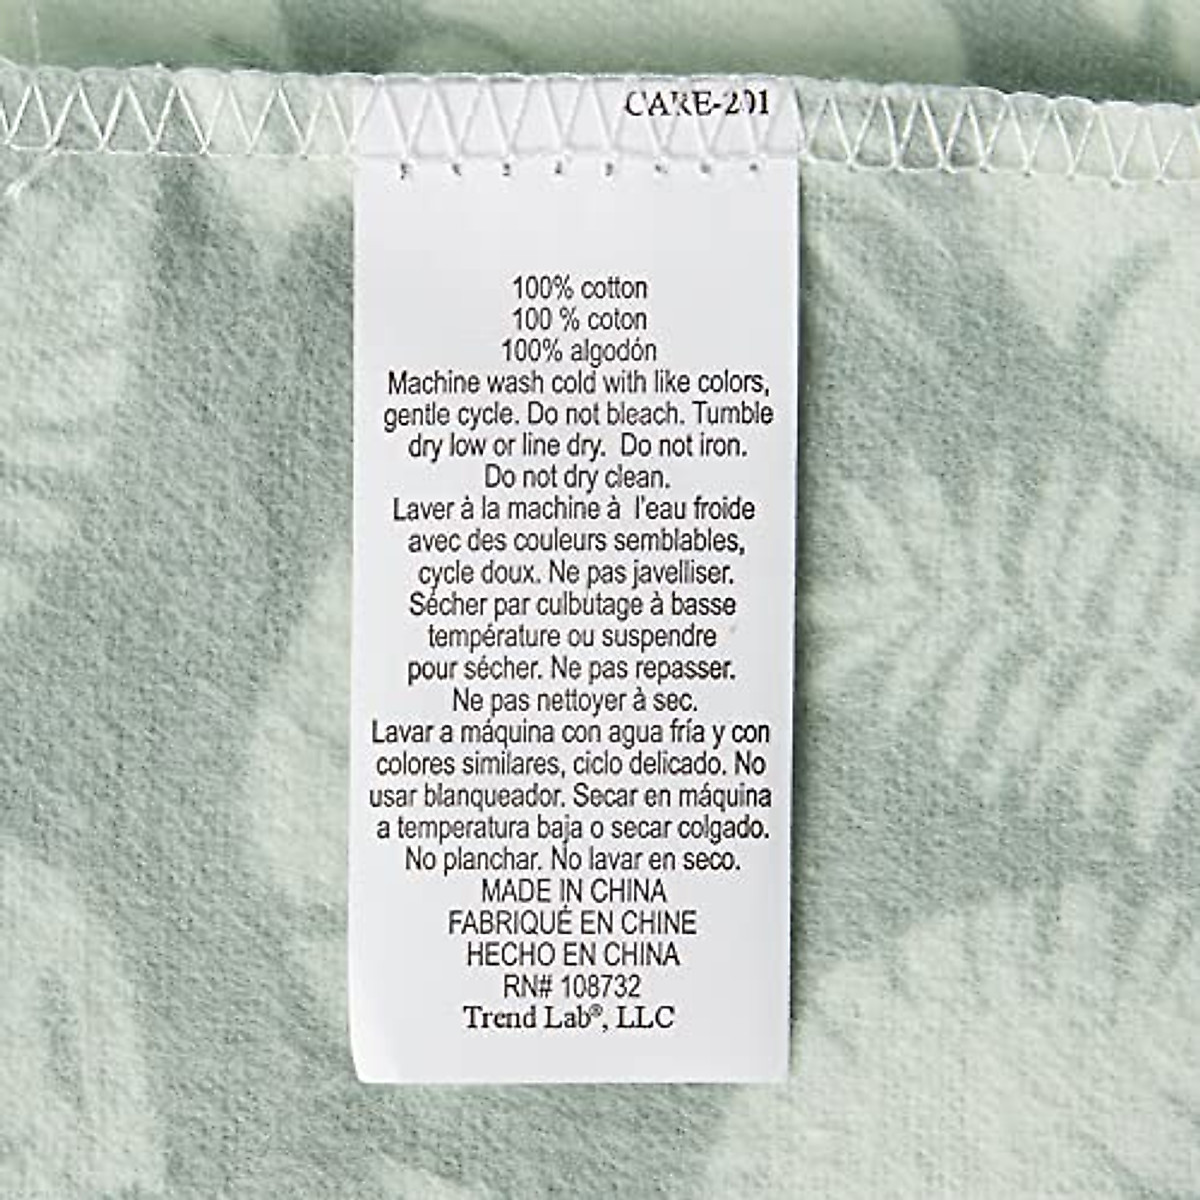 CARE-201
100% cotton
100 % coton
100% algodón
Machine wash cold with like colors,
gentle cycle. Do not bleach. Tumble
dry low or line dry. Do not iron.
Do not dry clean.
Laver à la machine à l'eau froide
avec des couleurs semblables,
cycle doux. Ne pas javelliser.
Sécher par culbutage à basse
température ou suspendre
pour sécher. Ne pas repasser.
Ne pas nettoyer à sec.
Lavar a máquina con agua fría y con
colores similares, ciclo delicado. No
usar blanqueador. Secar en máquina
a temperatura baja o secar colgado.
No planchar. No lavar en seco.
MADE IN CHINA
FABRIQUÉ EN CHINE
HECHO EN CHINA
RN# 108732
Trend Lab®, LLC